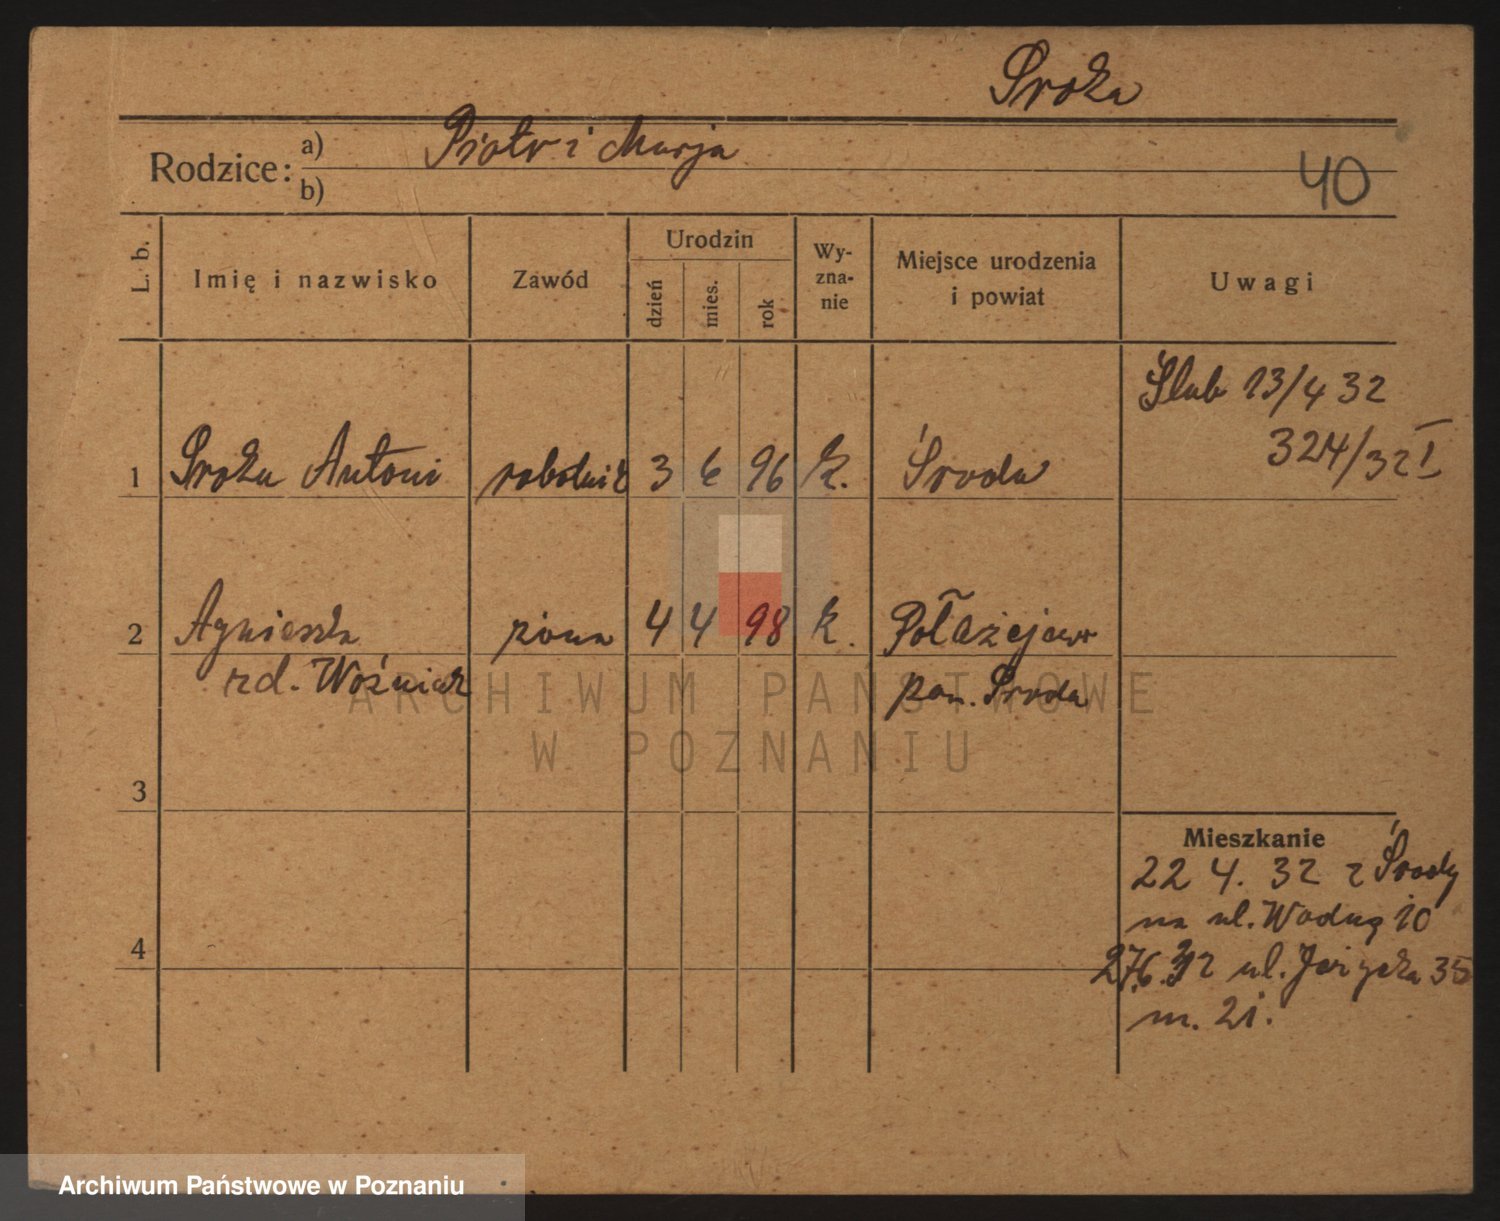 Sroka
Rodzice: a) Piotr i Marja
b)
40
L. b.
Imię i nazwisko
Zawód
Urodzin
dzień
mies.
rok
Wy-
zna-
nie
Miejsce urodzenia
i powiat
Uwagi
Ślub 13/4 32
324/32 I
1 Sroka Antoni robotnik 3 6 96 k. Środa
2 Agnieszka żona 4 4 98 k. Połażejewo
rd. Woźniak pow. Środa
ARCHIWUM PAŃSTWOWE
W POZNANIU
3
Mieszkanie
22 4. 32 z Środy
na ul. Wodną 10
4
27.6.32 ul. Jeżycka 35
m. 21.
Archiwum Państwowe w Poznaniu